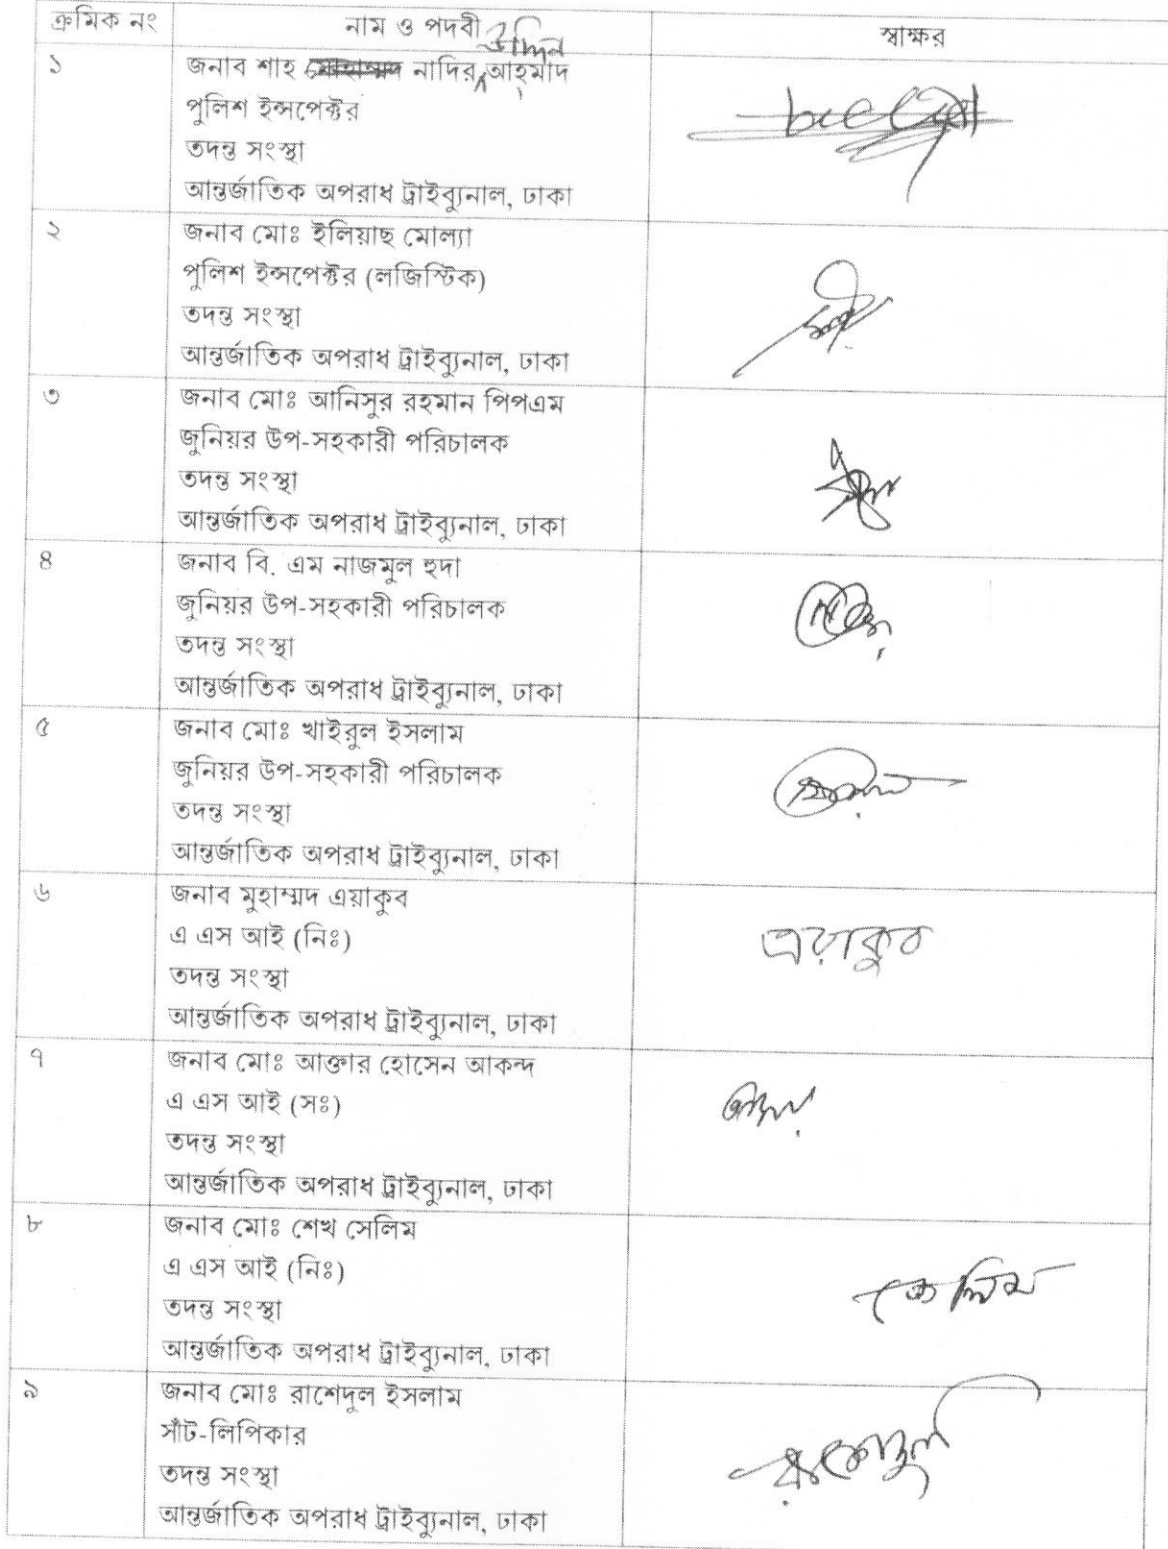 ক্রমিক নং নাম ও পদবী স্বাক্ষর
উদ্দিন
১ জনাব শাহ মোহাম্মদ নাদির আহমাদ
পুলিশ ইন্সপেক্টর
তদন্ত সংস্থা
আন্তর্জাতিক অপরাধ ট্রাইব্যুনাল, ঢাকা
২ জনাব মোঃ ইলিয়াছ মোল্যা
পুলিশ ইন্সপেক্টর (লজিস্টিক)
তদন্ত সংস্থা
আন্তর্জাতিক অপরাধ ট্রাইব্যুনাল, ঢাকা
৩ জনাব মোঃ আনিসুর রহমান পিপএম
জুনিয়র উপ-সহকারী পরিচালক
তদন্ত সংস্থা
আন্তর্জাতিক অপরাধ ট্রাইব্যুনাল, ঢাকা
৪ জনাব বি. এম নাজমুল হুদা
জুনিয়র উপ-সহকারী পরিচালক
তদন্ত সংস্থা
আন্তর্জাতিক অপরাধ ট্রাইব্যুনাল, ঢাকা
৫ জনাব মোঃ খাইরুল ইসলাম
জুনিয়র উপ-সহকারী পরিচালক
তদন্ত সংস্থা
আন্তর্জাতিক অপরাধ ট্রাইব্যুনাল, ঢাকা
৬ জনাব মুহাম্মদ এয়াকুব
এ এস আই (নিঃ) এয়াকুব
তদন্ত সংস্থা
আন্তর্জাতিক অপরাধ ট্রাইব্যুনাল, ঢাকা
৭ জনাব মোঃ আক্তার হোসেন আকন্দ
এ এস আই (সঃ)
তদন্ত সংস্থা
আন্তর্জাতিক অপরাধ ট্রাইব্যুনাল, ঢাকা
৮ জনাব মোঃ শেখ সেলিম
এ এস আই (নিঃ) সেলিম
তদন্ত সংস্থা
আন্তর্জাতিক অপরাধ ট্রাইব্যুনাল, ঢাকা
৯ জনাব মোঃ রাশেদুল ইসলাম
সাঁট-লিপিকার রাশেদুল
তদন্ত সংস্থা
আন্তর্জাতিক অপরাধ ট্রাইব্যুনাল, ঢাকা